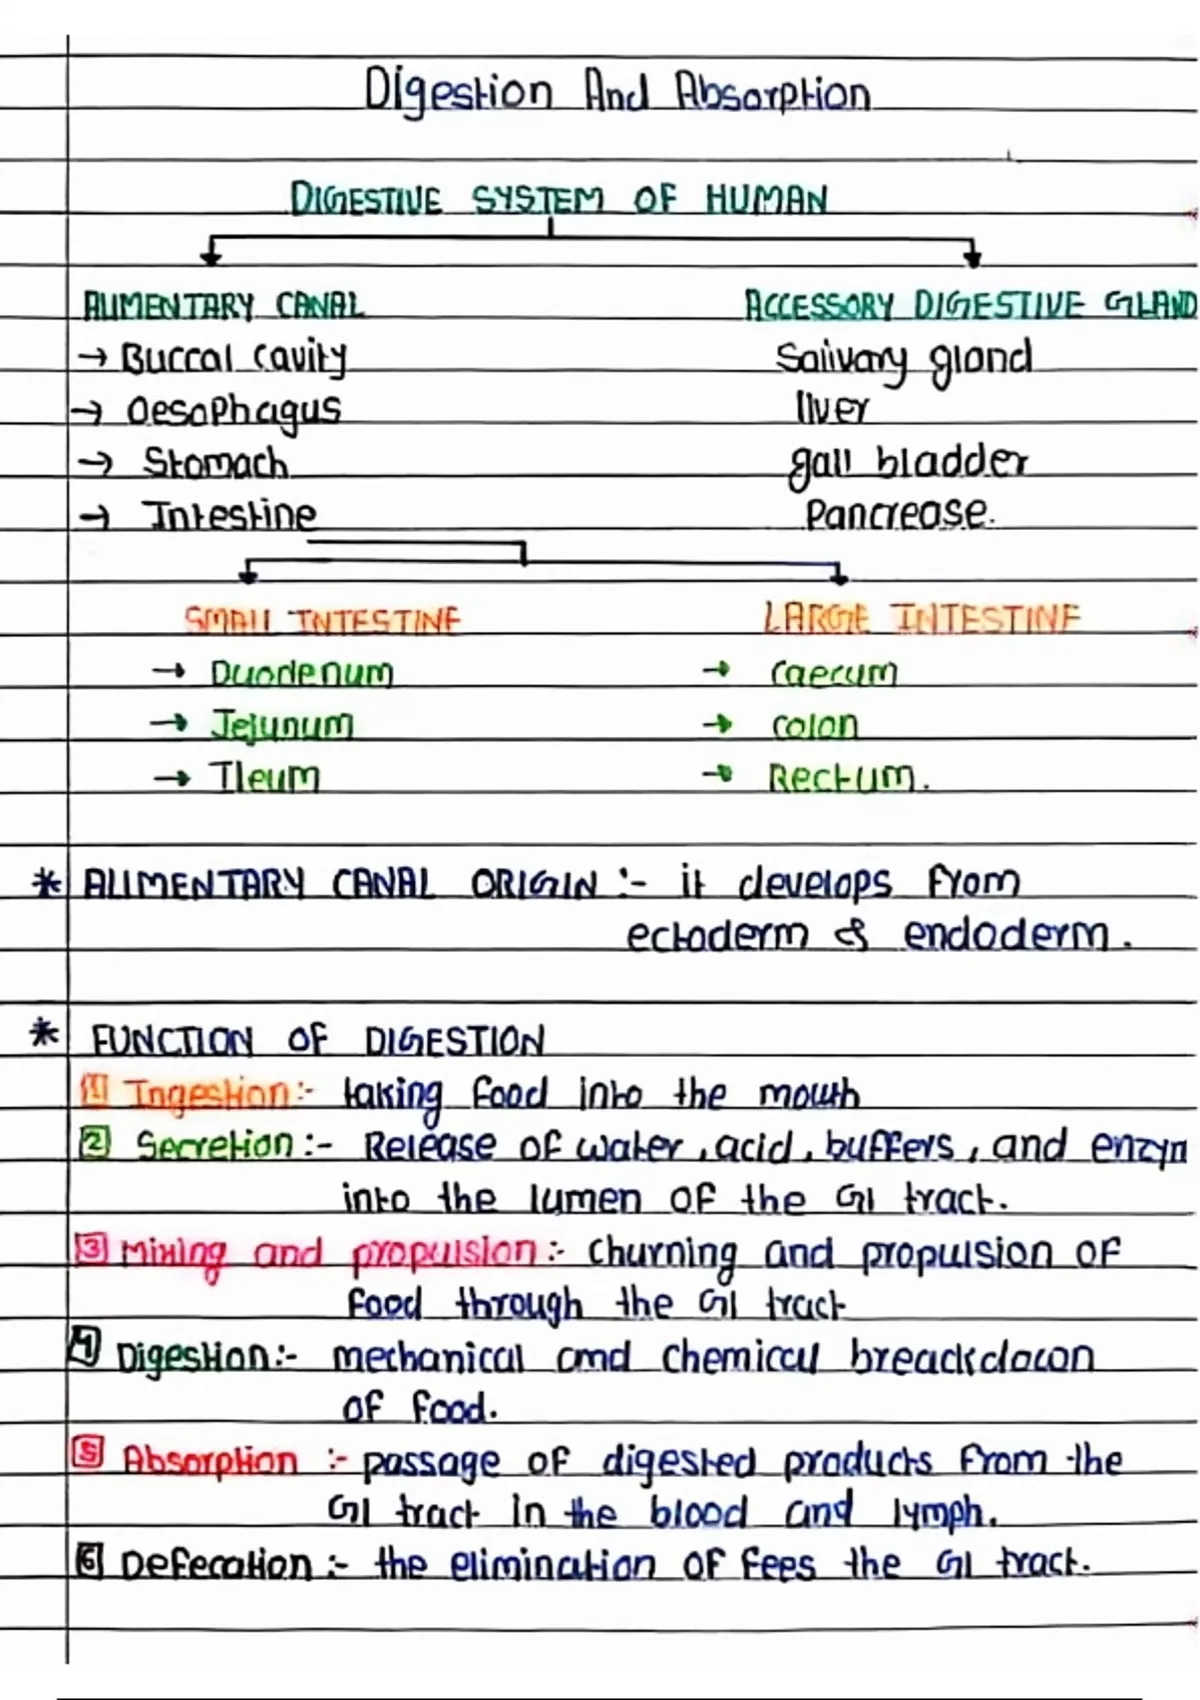 Digestion And Absorption
DIGESTIVE SYSTEM OF HUMAN
ALIMENTARY CANAL ACCESSORY DIGESTIVE GLAND
→ Buccal cavity Salivary gland
→ Oesophagus liver
→ Stomach gall bladder
→ Intestine Pancrease.
SMALL INTESTINE LARGE INTESTINE
→ Duodenum → Caecum
→ Jejunum → colon
→ Ileum → Rectum.
* ALIMENTARY CANAL ORIGIN :- it develops from
ectoderm & endoderm.
* FUNCTION OF DIGESTION
1 Ingestion:- taking food into the mouth
2 Secretion:- Release of water, acid, buffers, and enzym
into the lumen of the GI tract.
3 Mixing and propulsion:- churning and propulsion of
food through the GI tract
4 Digestion:- mechanical and chemical breackdown
of food.
5 Absorption :- passage of digested products from the
GI tract in the blood and lymph.
6 Defecation :- the elimination of fees the GI tract.